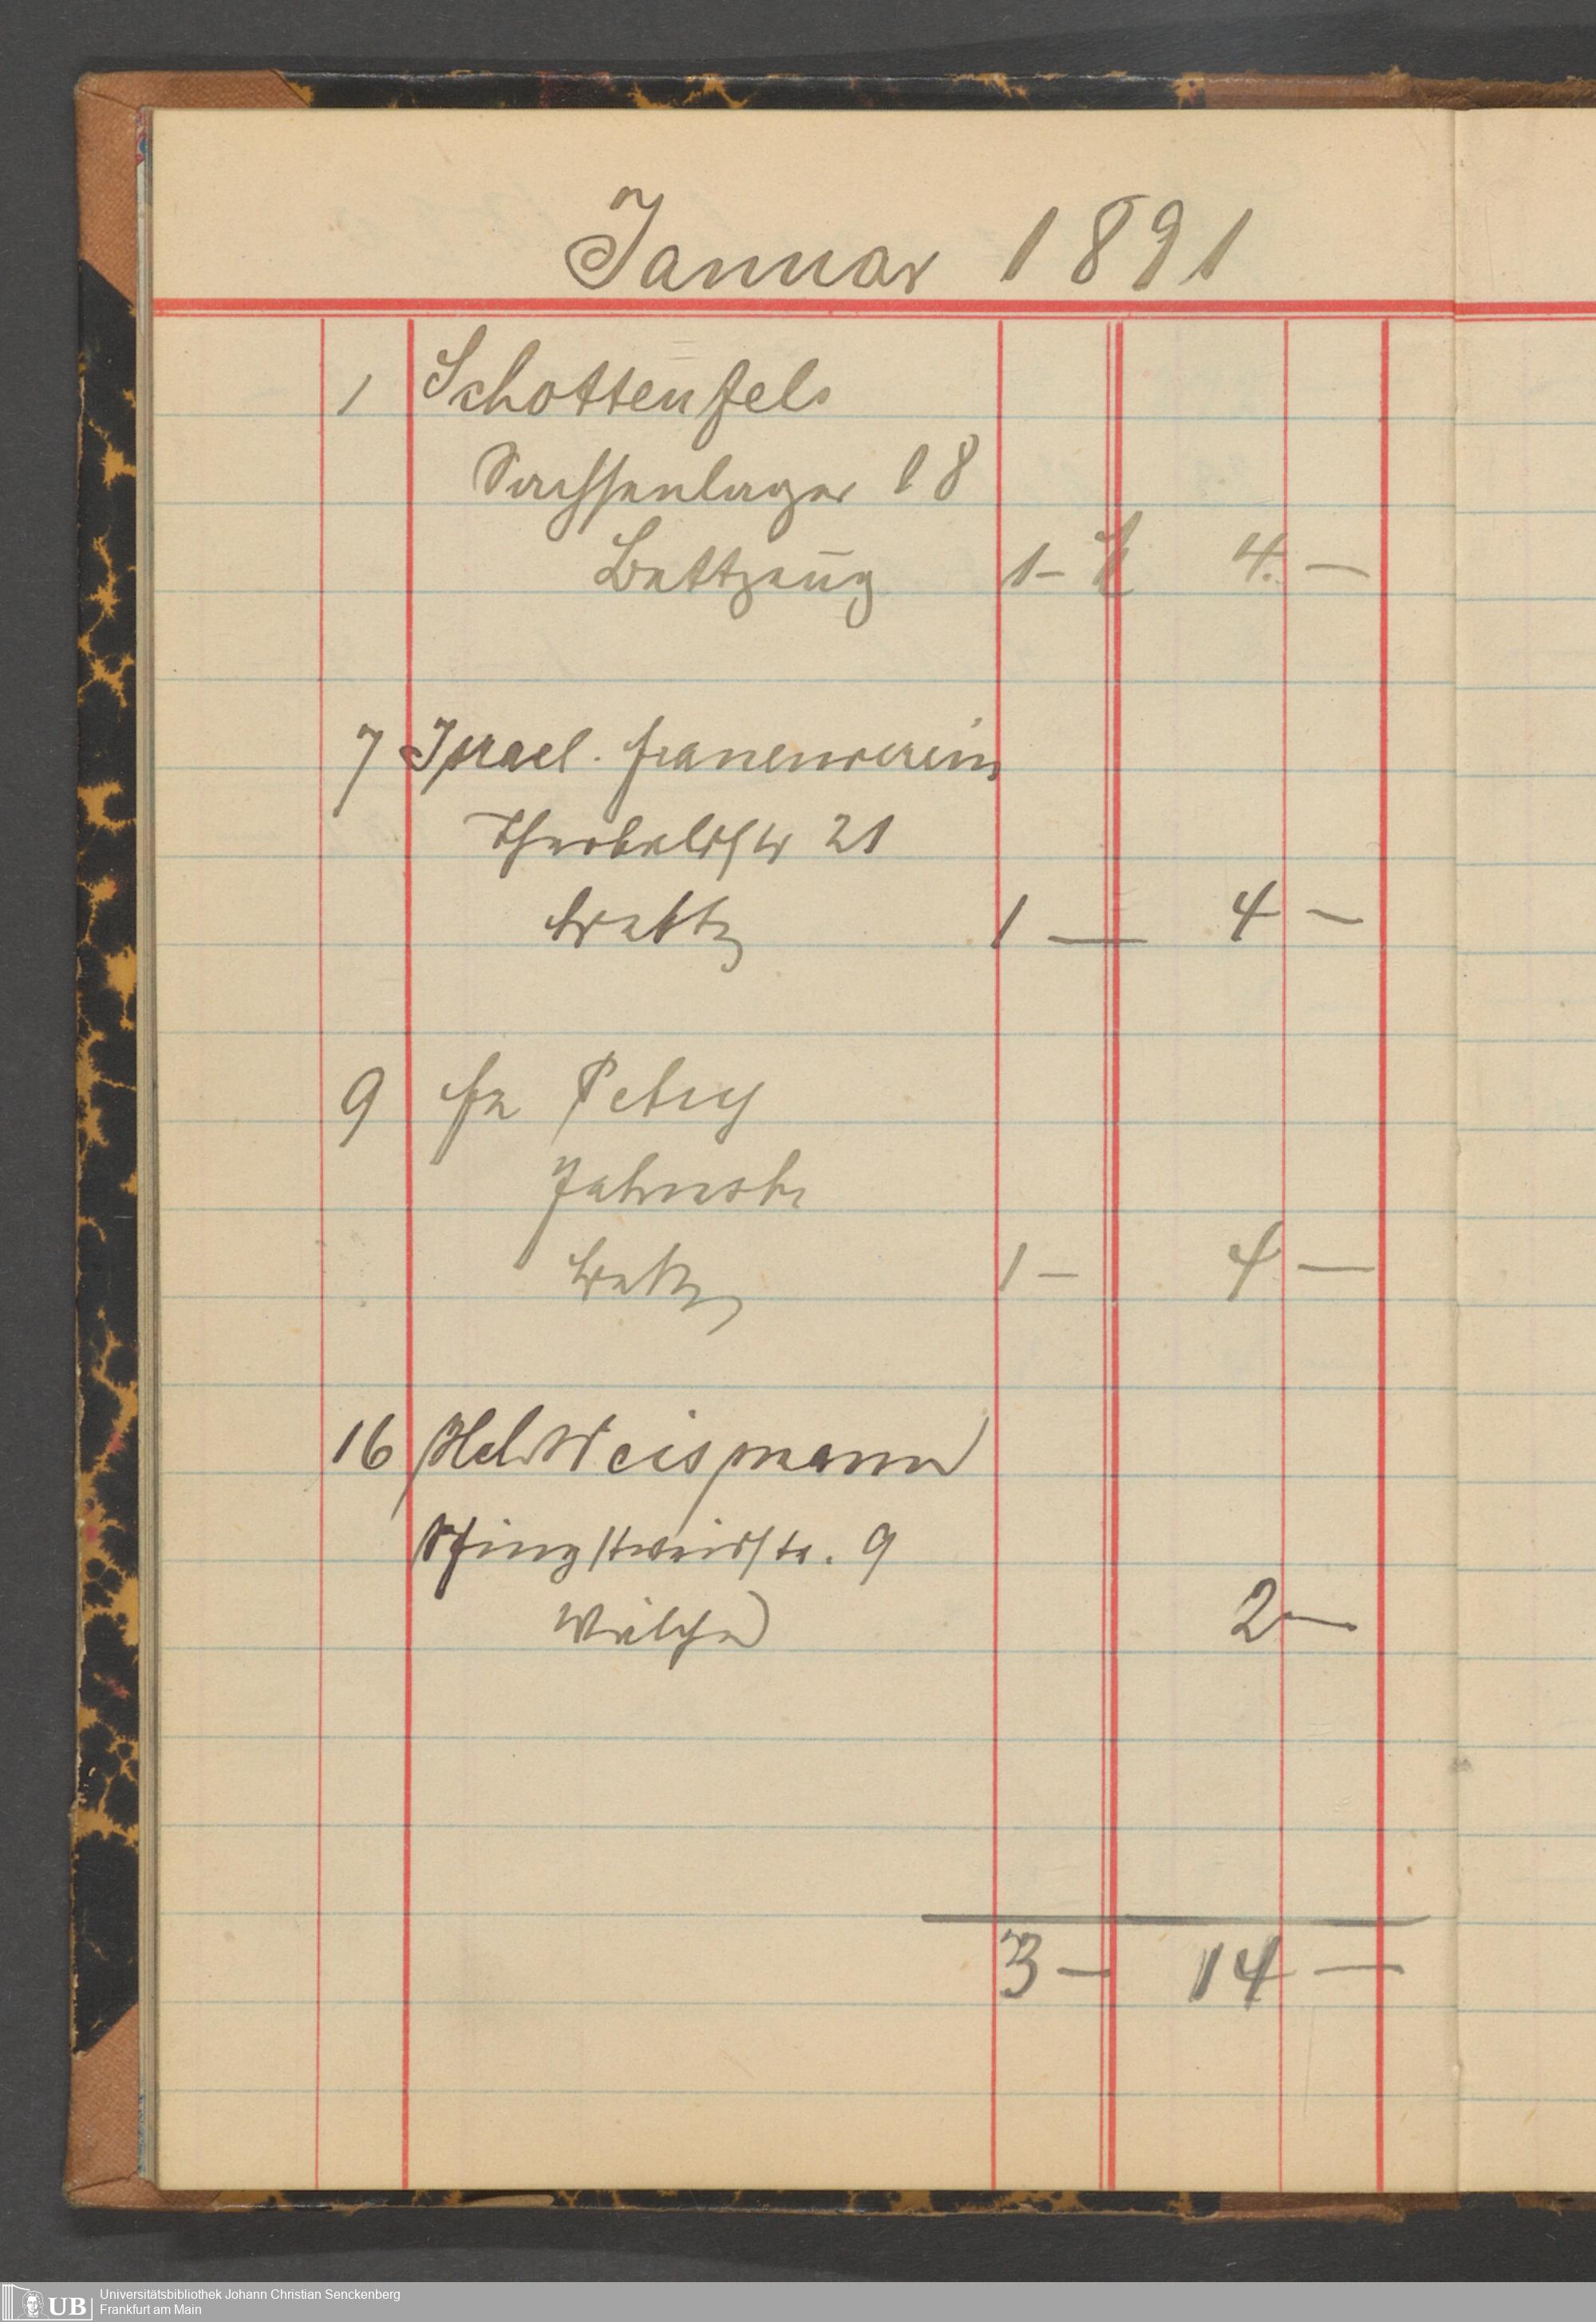 Januar 1891
1 Schottenfels
Sachsenlager 18
Bettzeug 1– 4.–
7 Israel. Frauenverein
Theobaldstr 21
Bettz 1 — 4 –
9 Fr Petry
Jahnstr
Bettz 1 – 4 —
16 Hch Weismann
Pfingstweidstr. 9
2 —
3 – 14 —
UB
Universitätsbibliothek Johann Christian Senckenberg
Frankfurt am Main